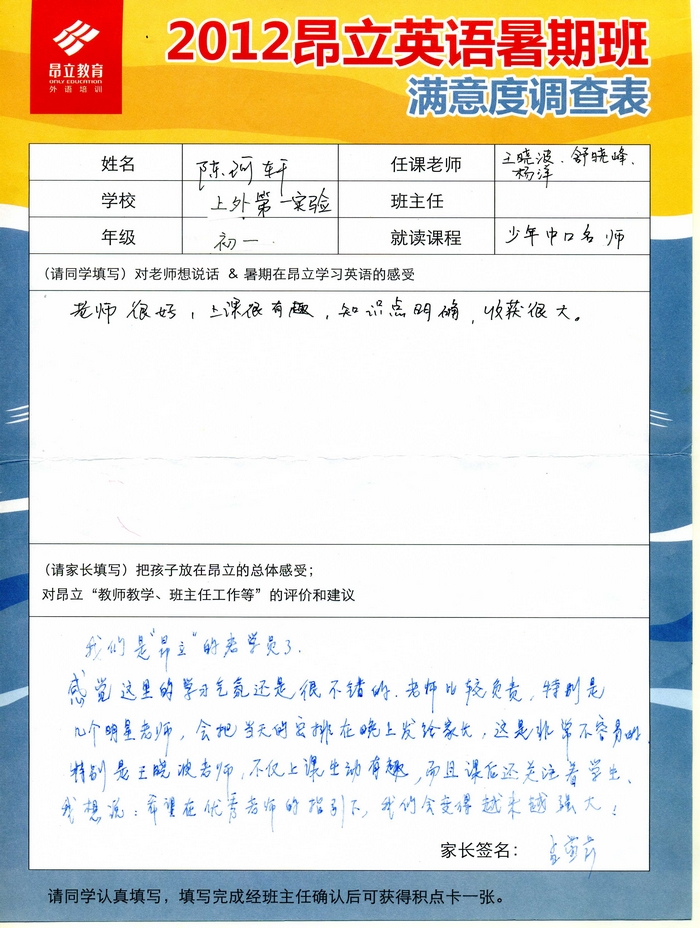 2012昂立英语暑期班
满意度调查表
昂立教育
ONLY EDUCATION
外语培训
姓名 陈珂轩 任课老师 王晓波、舒晓峰、杨洋
学校 上外第一实验 班主任
年级 初一. 就读课程 少年中口名师
(请同学填写) 对老师想说话 & 暑期在昂立学习英语的感受
老师很好，上课很有趣，知识点明确，收获很大。
(请家长填写) 把孩子放在昂立的总体感受;
对昂立“教师教学、班主任工作等”的评价和建议
我们是“昂立”的老学员了.
感觉这里的学习气氛还是很不错的.老师比较负责，特别是
几个明星老师，会把当天的安排在晚上发给家长，这是非常不容易的
特别是王晓波老师,不仅上课生动有趣,而且课后还关注着学生、
我想说：希望在优秀老师的指引下，我们会变得越来越强大！
家长签名：
请同学认真填写，填写完成经班主任确认后可获得积点卡一张。